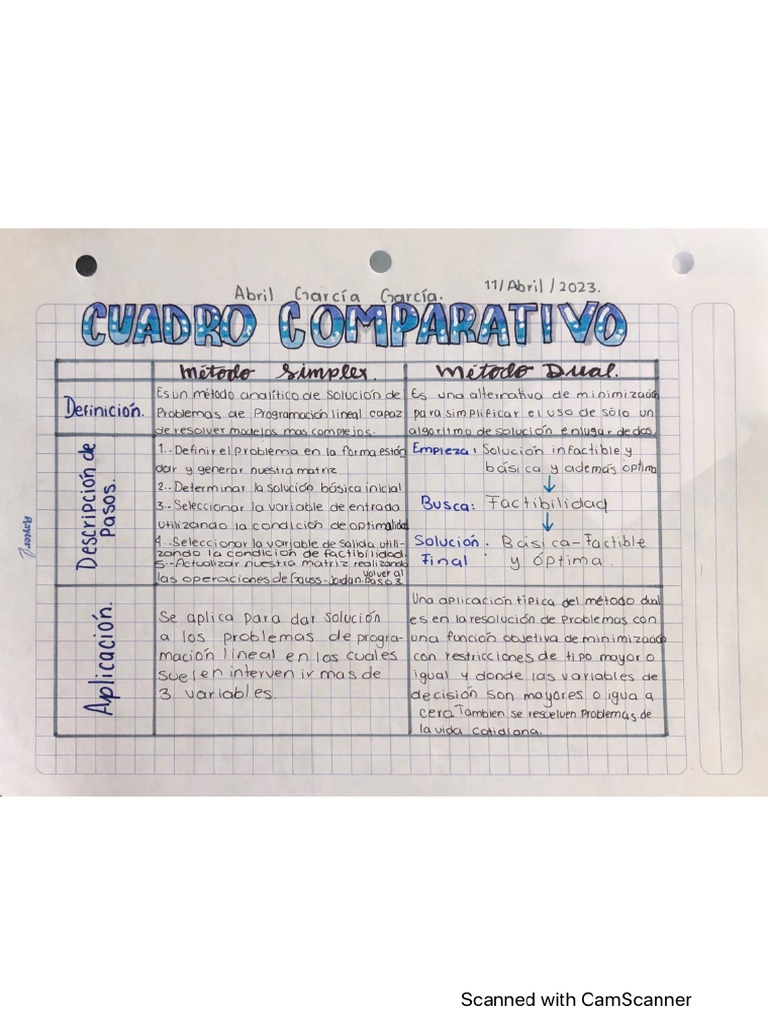 Abril García García.
11/Abril/2023.
CUADRO COMPARATIVO
Método Simplex.
Método Dual.
Definición.
Es un método analítico de solución de
Problemas de Programación lineal capaz
de resolver modelos mas complejos.
Es una alternativa de minimización
para simplificar el uso de sólo un
algoritmo de solución en lugar de dos.
Descripción de
Pasos.
1.- Definir el problema en la forma están
dar y generar nuestra matriz
2.- Determinar la solución básica inicial
3.- Seleccionar la variable de entrada
utilizando la condición de optimalidad
4.- Seleccionar la variable de salida utili-
zando la condición de factibilidad.
5.- Actualizar nuestra matriz realizando
las operaciones de Gauss-Jordan. volver al
Paso 3
Empieza: Solución infactible y
básica y además optima
Busca: Factibilidad
Solución. Básica-Factible
Final y óptima.
Aplicación.
Se aplica para dar solución
a los problemas de progra-
mación lineal en los cuales
suelen intervenir mas de
3 variables.
Una aplicación típica del método dual
es en la resolución de Problemas con
una función objetiva de minimización
con restricciones de tipo mayor o
igual y donde las variables de
decisión son mayores o igua a
cero Tambien se resuelven Problemas de
la vida cotidiana.
Scanned with CamScanner